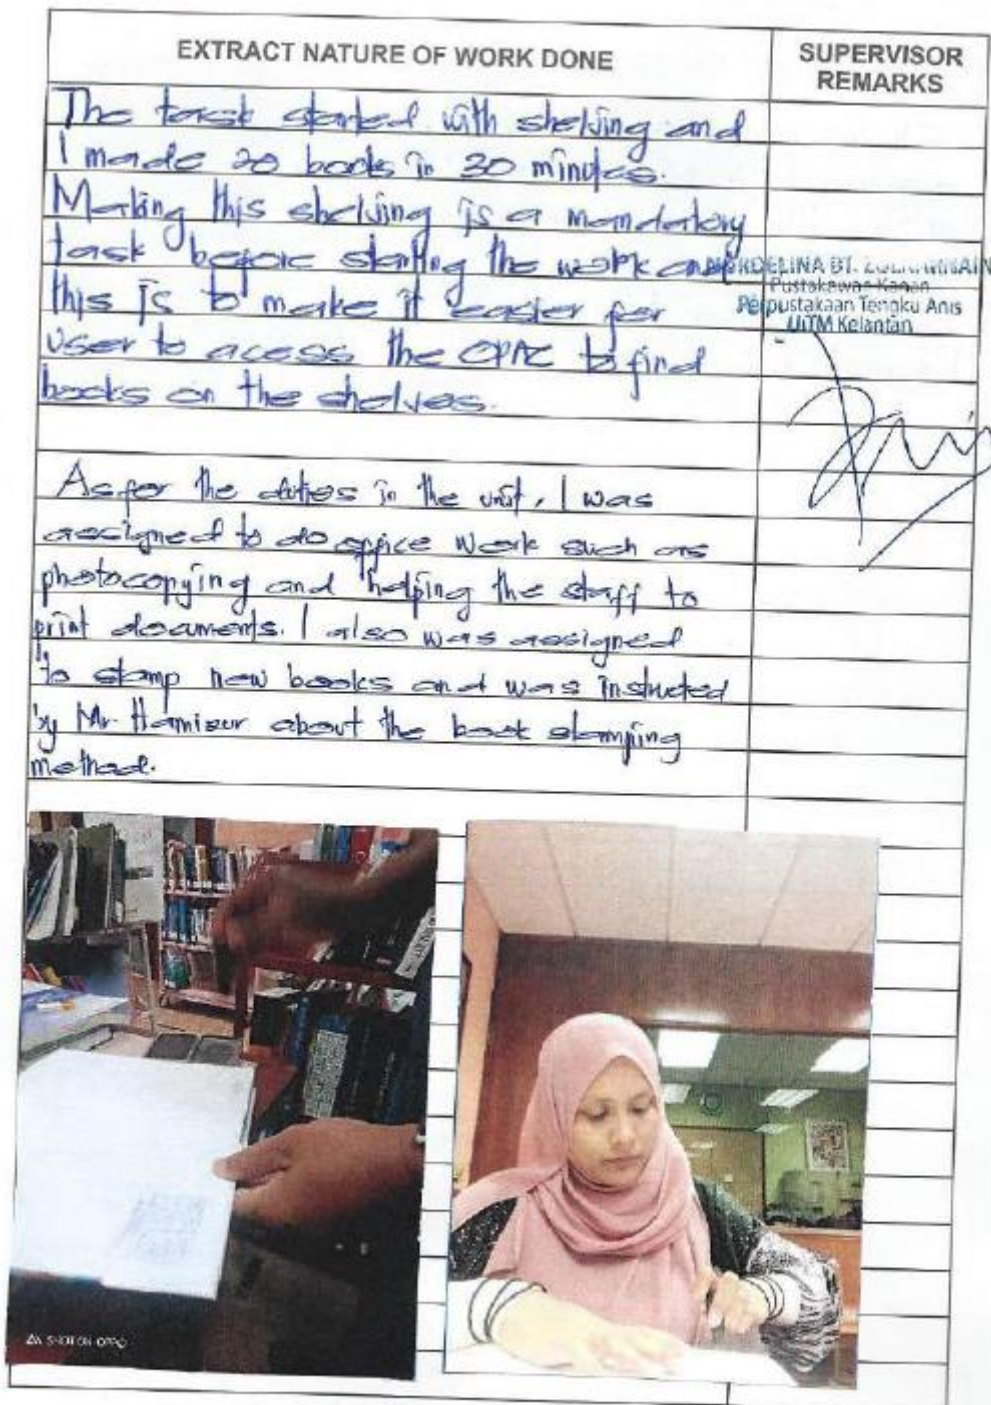 EXTRACT NATURE OF WORK DONE
SUPERVISOR
REMARKS
The task started with shelving and
I made 20 books in 30 minutes.
Making this shelving is a mandatory
task before starting the work and
this is to make it easier for
user to acess the OPAC to find
books on the shelves.
As for the duties in the unit, I was
assigned to do office work such as
photocopying and helping the staff to
print documents. I also was assigned
to stamp new books and was instucted
by Mr. Hamizur about the book stamping
method.
BT.
Pustakawan Kanan
Perpustakaan Tengku Anis
UiTM Kelantan
SHOT ON OPPO